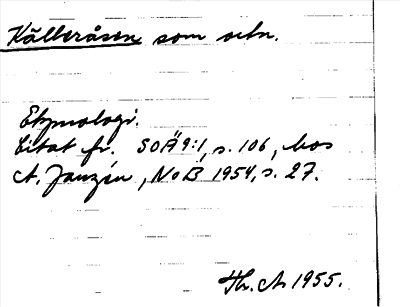 Källeråsen som ortn.
Etymologi.
Citat fr. SOÄ 9:1, s. 106, hos
A. Janzén, NoB 1954, s. 27.
Hr. A 1955.